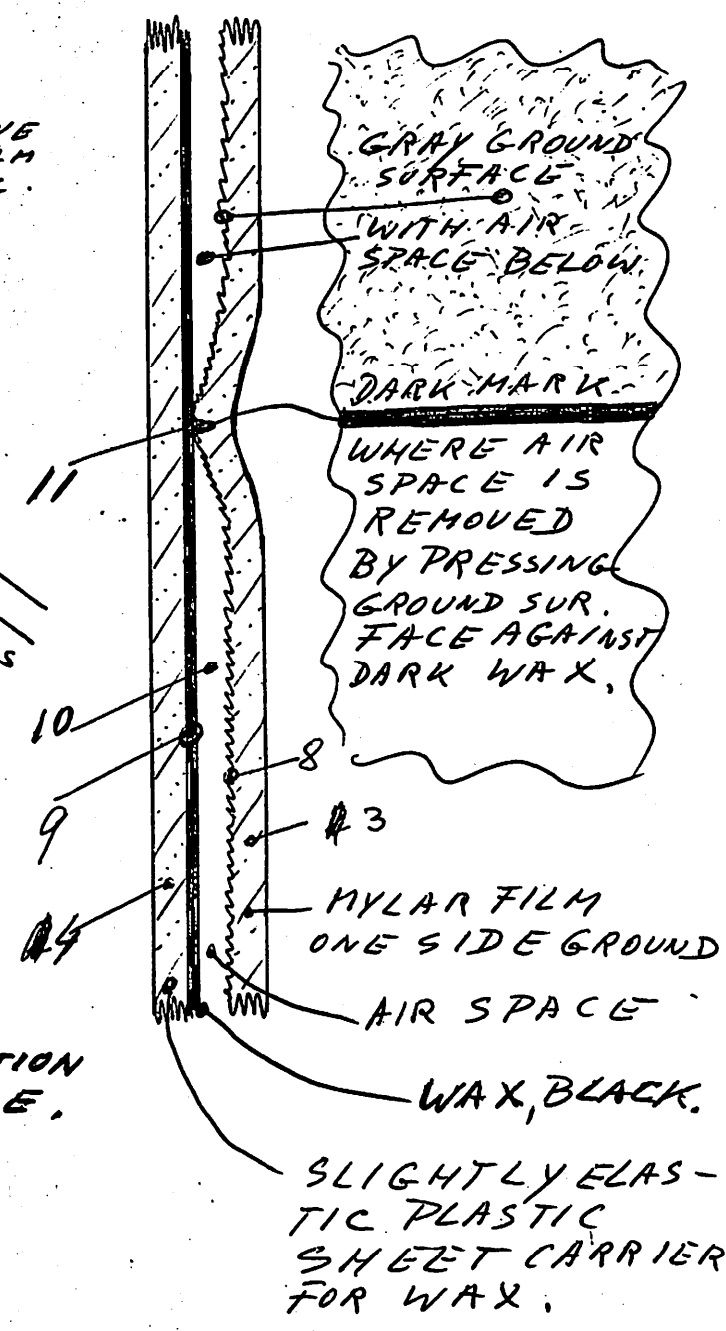 GRAY GROUND
SURFACE
WITH AIR
SPACE BELOW
DARK MARK
WHERE AIR
SPACE IS
REMOVED
BY PRESSING
GROUND SUR.
FACE AGAINST
DARK WAX,
11
S
10
9
8
3
4
MYLAR FILM
ONE SIDE GROUND
AIR SPACE
TION
E.
WAX, BLACK.
SLIGHTLY ELAS-
TIC PLASTIC
SHEET CARRIER
FOR WAX.